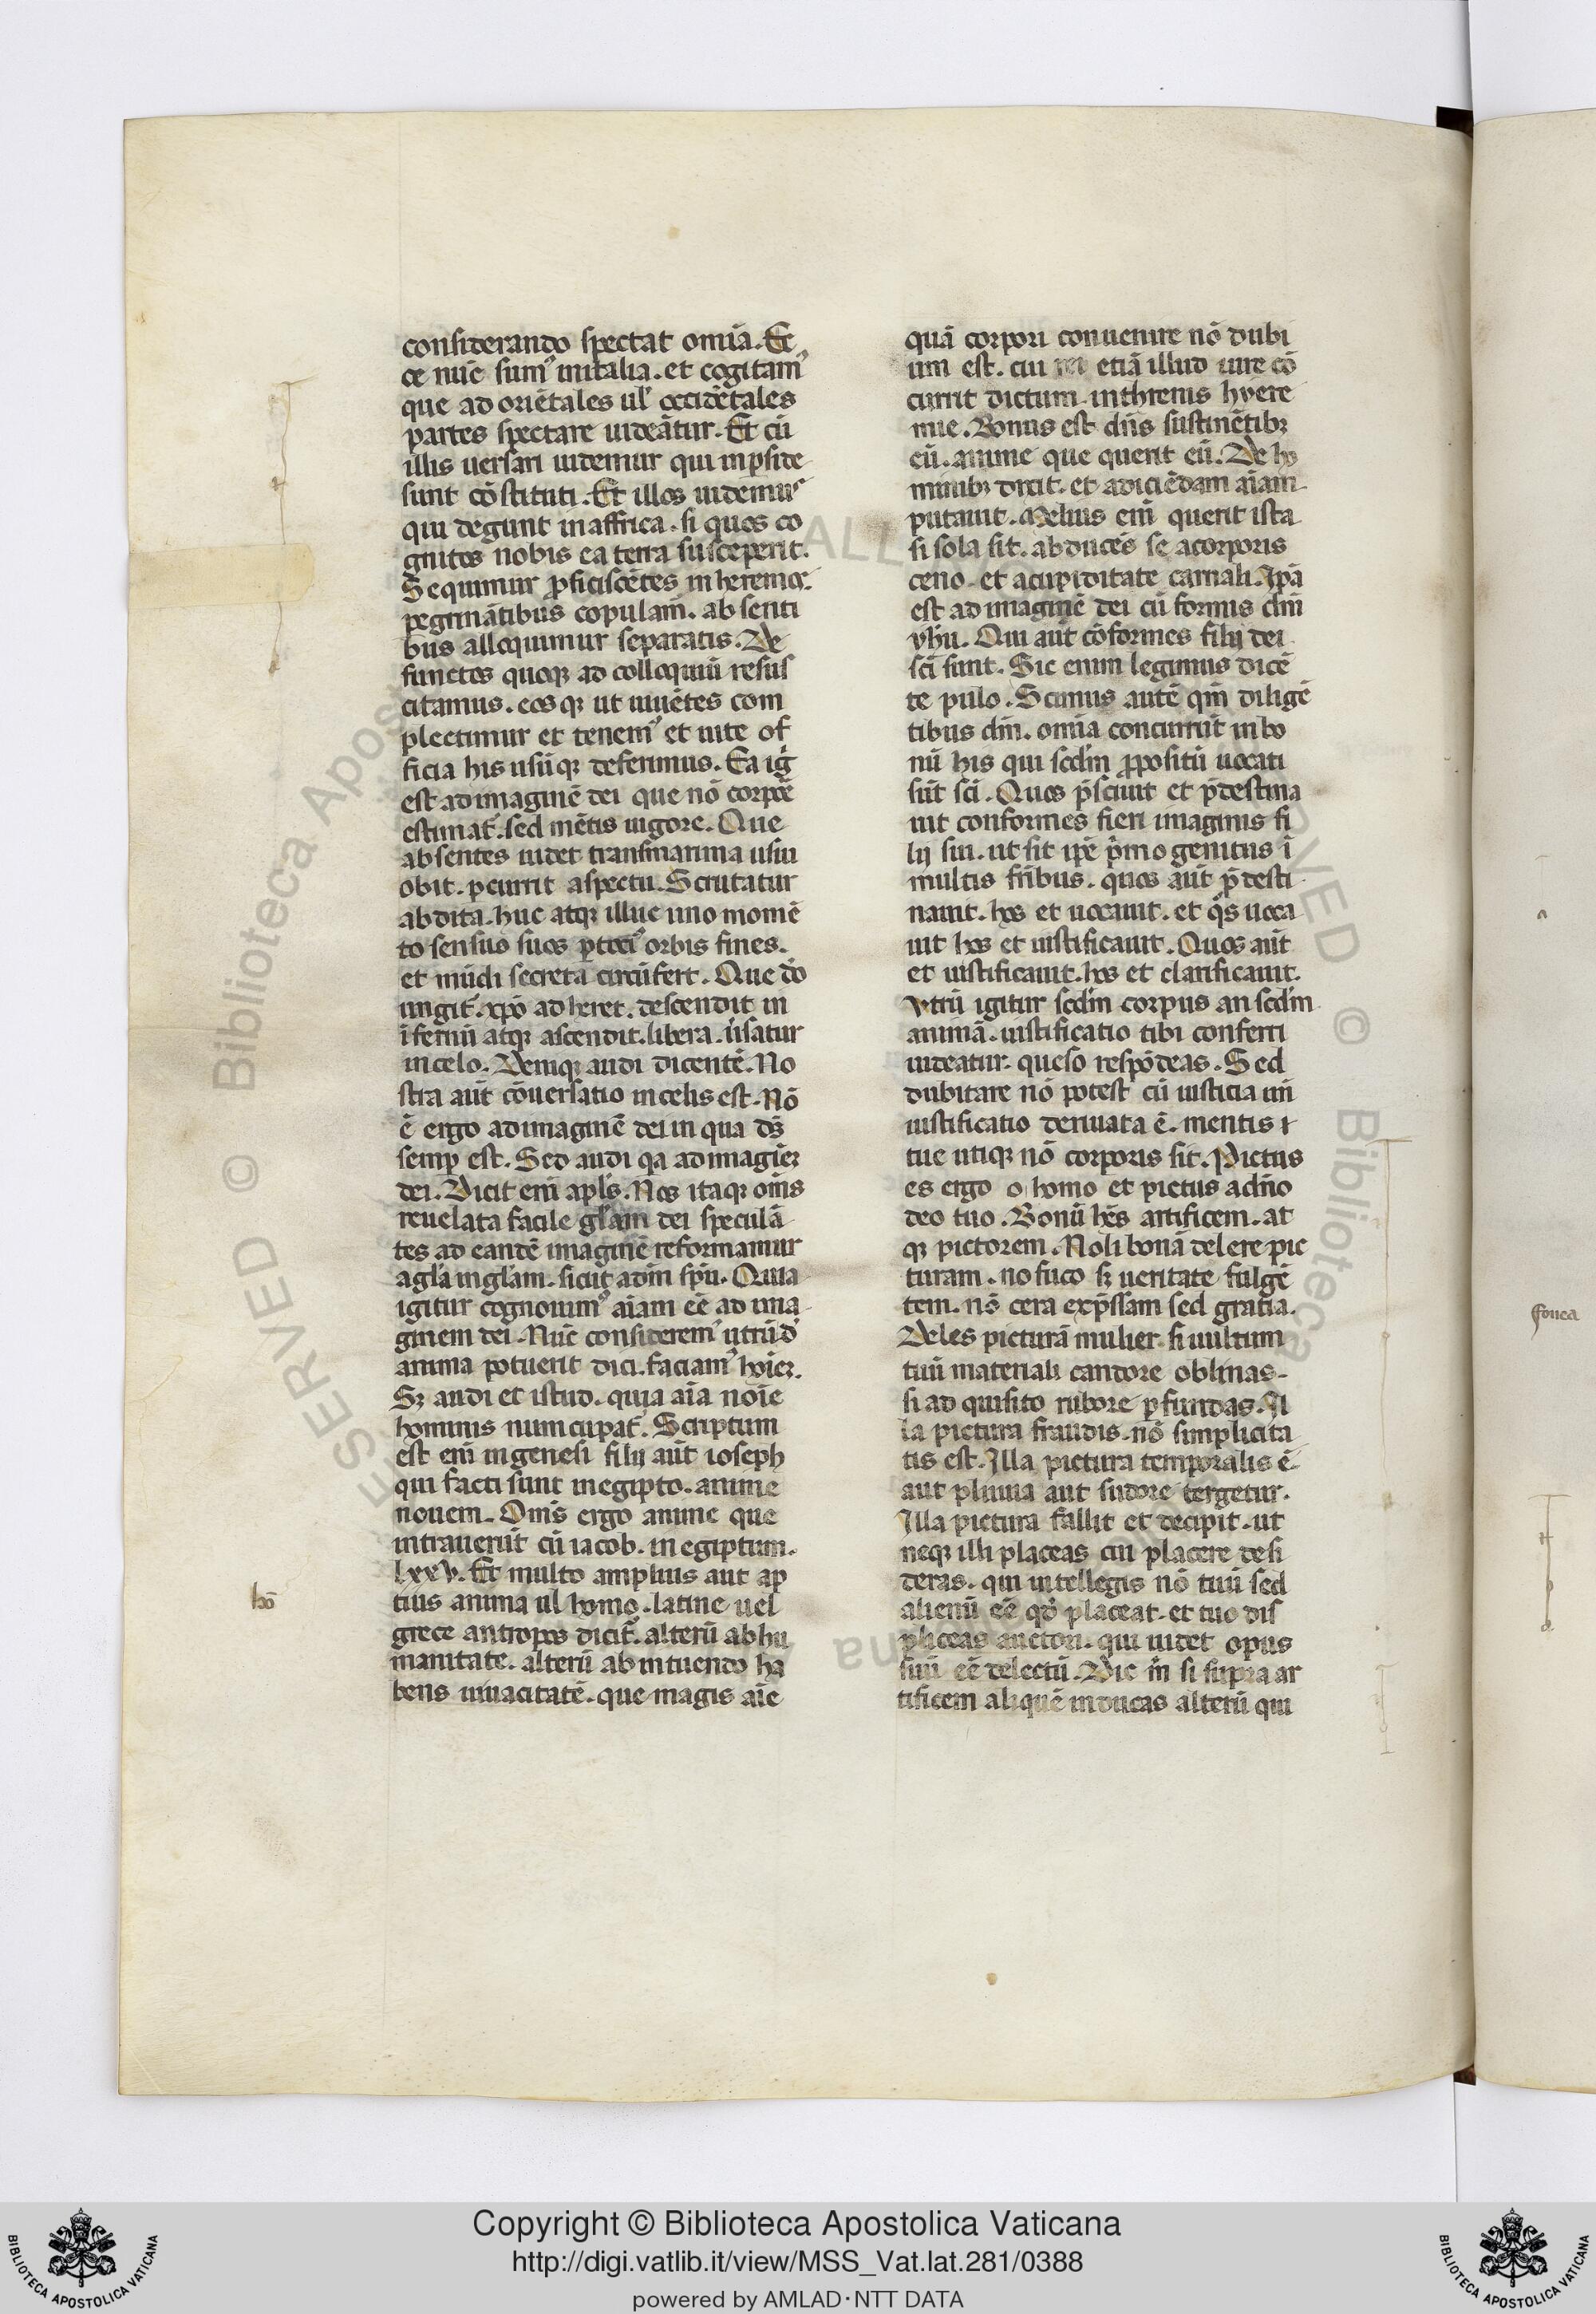 considerando spectat omīa. Ec
ce nūc sumꝰ initalia. et cogitamꝰ
que ad oriētales ul' occidētales
partes spectare uideātur. Et cū
illis uersari uidemur qui inpside
sunt cōstituti. Et illos uidemuꝰ
qui degunt in affrica. si quos co
gnitos nobis ea terra susceperit.
Sequimur ꝓficiscētes inheremꝰ
pegrinātibus copulam̄. absenti
bus alloquimur separatis. De
functos quoqꝫ ad colloquiū resus
citamus. eosqꝫ ut uiuētes com
plectimur et tenemꝰ et uite of
ficia his usūqꝫ deferimus. Ea ig̊
est ad imaginē dei que nō corpoē
estimat᷑. sed mētis uigore. Que
absentes uidet transmarina uisu
obit. ꝑcurrit aspectu. Scrutatur
abdita. huc atqꝫ illuc uno momē
to sensus suos ꝑ toci᷒ orbis fines.
et mūdi secreta circūfert. Que dō
iungit᷑. xp̄o adheret. descendit in
īfernū atqꝫ ascendit. libera. ūsatur
in celo. Deniqꝫ audi dicentē. No
stra aūt cōuersatio incelis est. Nō
ē ergo adimaginē dei in qua ds̄
semp̄ est. Sed audi qa ad imagiēꝫ
dei. Dicit eni apl's. Nos itaqꝫ om̄s
reuelata facile gl'am dei speculā
tes ad eandē imaginē reformamur
a gl'a ingl'am. sicut adn̄i sp̄u. Quia
igitur cognouimꝰ aīam eē ad ima
ginem dei. Nūc consideremꝰ utrū d'
anima potuerit dici. faciamꝰ hoīeꝫ.
Sꝫ audi et istud. quia aīa noīe
hominis nuncupat᷑. Scriptum
est eni in genesi filij aūt ioseph
qui facti sunt inegipto. anime
nouem. Om̄s ergo anime que
intrauerūt cū iacob. in egiptum.
lxxv. Et multo amplius aut ap
tius anima ul' homo. latine uel
grece antropos dicit᷑. alterū ab hu
manitate. alterū ab intuendo ha
bens uiuacitatē. que magis aīe
hō
quā corpori conuenire nō dubi
um est. cui rei etiā illud iure cō
currit dictum inthrenis hyere
mie. Bonus est dn̄s sustinētibꝫ
eū. anime que querit eū. De ho
minibꝫ dixit. et adiciēdam aīam
putauit. Melius enī querit ista
si sola sit. abducēs se acorporis
ceno. et acupiditate carnali. Ip̄a
est ad imaginē dei cū formis dn̄i
yhū. Qui aūt cōformes filij dei
sc̄i sunt. Sic enim legimus dicē
te pulo. Scimus autē qm̄ diligē
tibus dm̄. omīa concurrūt in bo
nū his qui scd̄m ꝓpositū uocati
sūt sc̄i. Quos p̄sciuit et p̄destina
uit conformes fieri imaginis fi
lij sui. ut sit ip̄e p̄mogenitus ī
multis frībus. quos aūt p̄desti
nauit. hos et uocauit. et q̊s uoca
uit hos et iustificauit. Quos aūt
et iustificauit. hos et clarificauit.
Vtrū igitur scd̄m corpus an scd̄m
animā. iustificatio tibi conferri
uideatur. queso respōdeas. Sed
dubitare nō potest cū iusticia un̄
iustificatio deriuata ē. mentis ⁊
tue utiqꝫ nō corporis sit. Pictus
es ergo o homo et pictus adn̄o
deo tuo. Bonū hēs artificem. at
qꝫ pictorem. Noli bonā delere pic
turam. no fuco sꝫ ueritate fulgē
tem. nō cera exp̄ssam sed gratia.
Deles picturā mulier. si uultum
tuū materiali candore oblinas.
si ad quisito rubore ꝑfundas. Il
la pictura fraudis. nō simplicita
tis est. Illa pictura temporalis ē.
aut pluuia aut sudore tergetur.
Illa pictura fallit et decipit. ut
neqꝫ illi placeas cui placere desi
deras. qui intellegis nō tuū sed
alienū eē qd̊ placeat. et tuo dis
pliceas auctori. qui uidet opus
suū eē delectū. Dic m̄ si supra ar
tificem aliquē inducas alterū qui
fouea
Copyright © Biblioteca Apostolica Vaticana
http://digi.vatlib.it/view/MSS_Vat.lat.281/0388
powered by AMLAD·NTT DATA